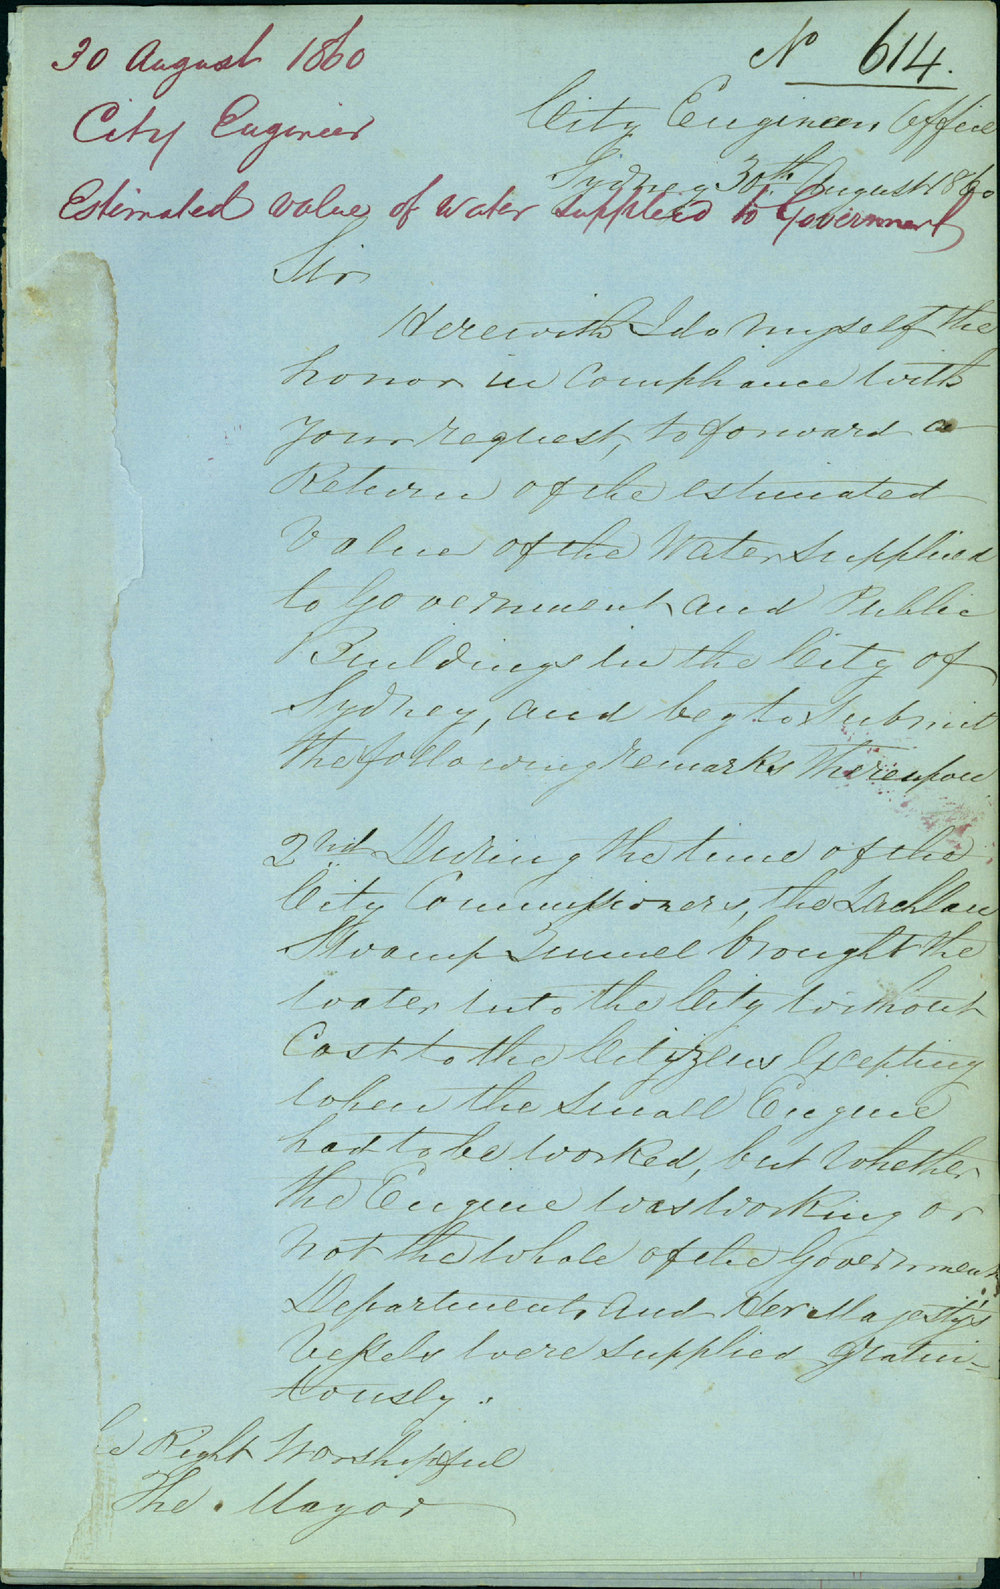 30 August 1860
No 614.
City Engineer
City Engineers Office
Sydney 30th August 1860
Estimated value of water supplied to Government
Sir
Herewith I do myself the
honor in Compliance with
your request, to forward a
Return of the estimated
Value of the Water supplied
to Government and Public
Buildings in the City of
Sydney, and beg to submit
the following remarks thereupon
2nd During the time of the
City Commissioners, the Lachlan
Swamp Tunnel brought the
water into the City without
Cost to the Citizens excepting
when the small Engine
had to be worked, but whether
the Engine was working or
not the whole of the Government
Departments and Her Majesty's
Vessels were supplied gratui-
tously.
Right Worshipful
The Mayor